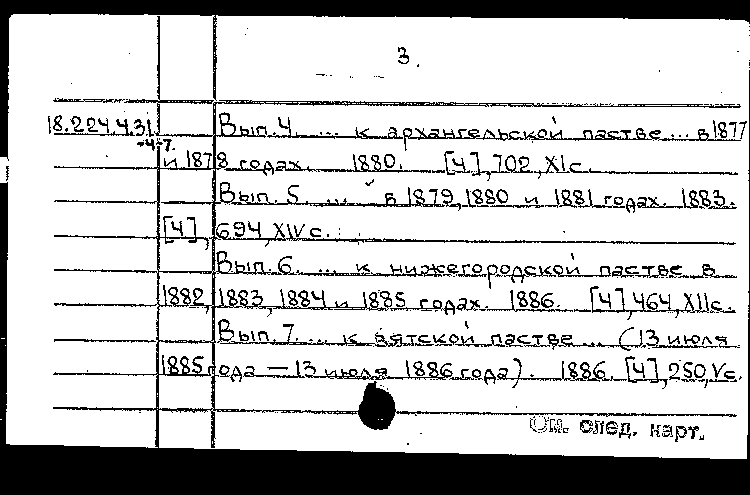 3.
18.224.4.31. Вып.4. ... к архангельской пастве ... в 1877
-4-7.
и 1878 годах. 1880. [4], 702, XI с.
Вып. 5 ... " в 1879, 1880 и 1881 годах. 1883.
[4], 694, XIV с.
Вып. 6. ... к нижегородской пастве в
1882, 1883, 1884 и 1885 годах. 1886. [4], 464, XII с.
Вып. 7. ... к вятской пастве ... (13 июля
1885 года — 13 июля 1886 года). 1886. [4], 250, V с.
См. след. карт.